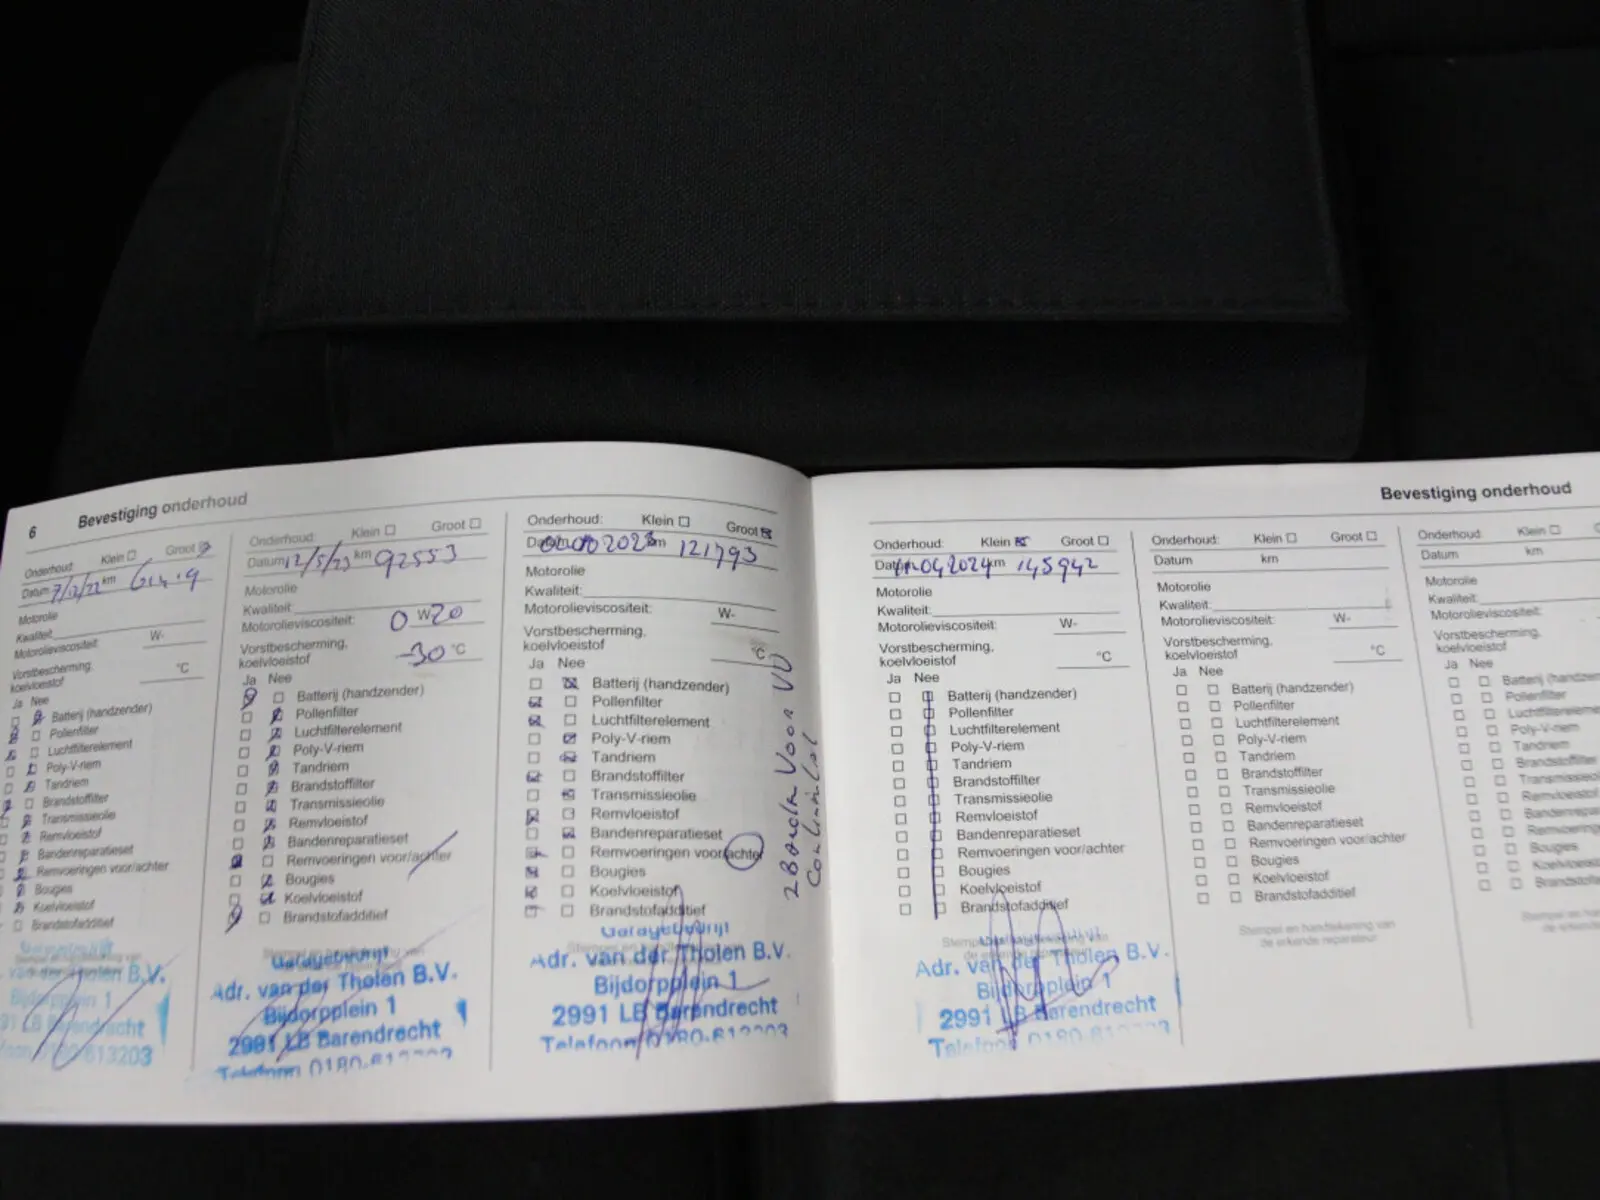 6 Bevestiging onderhoud
Onderhoud: Klein Groot
Datum 7/12/22 km
Motorolie
Kwaliteit:
Motorolieviscositeit: W-
Vorstbescherming,
koelvloeistof °C
Ja Nee
Batterij (handzender)
Pollenfilter
Luchtfilterelement
Poly-V-riem
Tandriem
Brandstoffilter
Transmissieolie
Remvloeistof
Bandenreparatieset
Remvoeringen voor/achter
Bougies
Koelvloeistof
Brandstofadditief
Stempel en handtekening van
van der Tholen B.V.
Bijdorpplein 1
2991 LB Barendrecht
0180-613203
Onderhoud: Klein Groot
Datum 12/5/23 km 92553
Motorolie
Kwaliteit
Motorolieviscositeit: 0 W 20
Vorstbescherming,
koelvloeistof -30 °C
Ja Nee
Batterij (handzender)
Pollenfilter
Luchtfilterelement
Poly-V-riem
Tandriem
Brandstoffilter
Transmissieolie
Remvloeistof
Bandenreparatieset
Remvoeringen voor/achter
Bougies
Koelvloeistof
Brandstofadditief
Stempel en handtekening van
Garagebedrijf
Adr. van der Tholen B.V.
Bijdorpplein 1
2991 LB Barendrecht
Telefoon 0180-613203
Onderhoud: Klein Groot
Datum 2023 km 121793
Motorolie
Kwaliteit:
Motorolieviscositeit: W-
Vorstbescherming,
koelvloeistof °C
Ja Nee
Batterij (handzender)
Pollenfilter
Luchtfilterelement
Poly-V-riem
Tandriem
Brandstoffilter
Transmissieolie
Remvloeistof
Bandenreparatieset
Remvoeringen voor/achter
Bougies
Koelvloeistof
Brandstofadditief
Stempel en
Garagebedrijf
Adr. van der Tholen B.V.
Bijdorpplein 1
2991 LB Barendrecht
Telefoon 0180-613203
2 Banden Voor VD
Continental
Bevestiging onderhoud
Onderhoud: Klein Groot
Datum 04 2024 km 145942
Motorolie
Kwaliteit:
Motorolieviscositeit: W-
Vorstbescherming,
koelvloeistof °C
Ja Nee
Batterij (handzender)
Pollenfilter
Luchtfilterelement
Poly-V-riem
Tandriem
Brandstoffilter
Transmissieolie
Remvloeistof
Bandenreparatieset
Remvoeringen voor/achter
Bougies
Koelvloeistof
Brandstofadditief
Adr. van der Tholen B.V.
Bijdorpplein 1
2991 LB Barendrecht
Telefoon 0180-613203
Onderhoud: Klein Groot
Datum km
Motorolie
Kwaliteit:
Motorolieviscositeit: W-
Vorstbescherming,
koelvloeistof °C
Ja Nee
Batterij (handzender)
Pollenfilter
Luchtfilterelement
Poly-V-riem
Tandriem
Brandstoffilter
Transmissieolie
Remvloeistof
Bandenreparatieset
Remvoeringen voor/achter
Bougies
Koelvloeistof
Brandstofadditief
Stempel en handtekening van
de erkende reparateur
Onderhoud: Klein
Datum km
Motorolie
Kwaliteit:
Motorolieviscositeit:
Vorstbescherming,
koelvloeistof
Ja Nee
Batterij (handzen
Pollenfilter
Luchtfilterelemen
Poly-V-riem
Tandriem
Brandstoffilter
Transmissieoli
Remvloeistof
Bandenrepara
Remvoeringen
Bougies
Koelvloeistof
Brandstofadd
Stempel en hand
de erkende